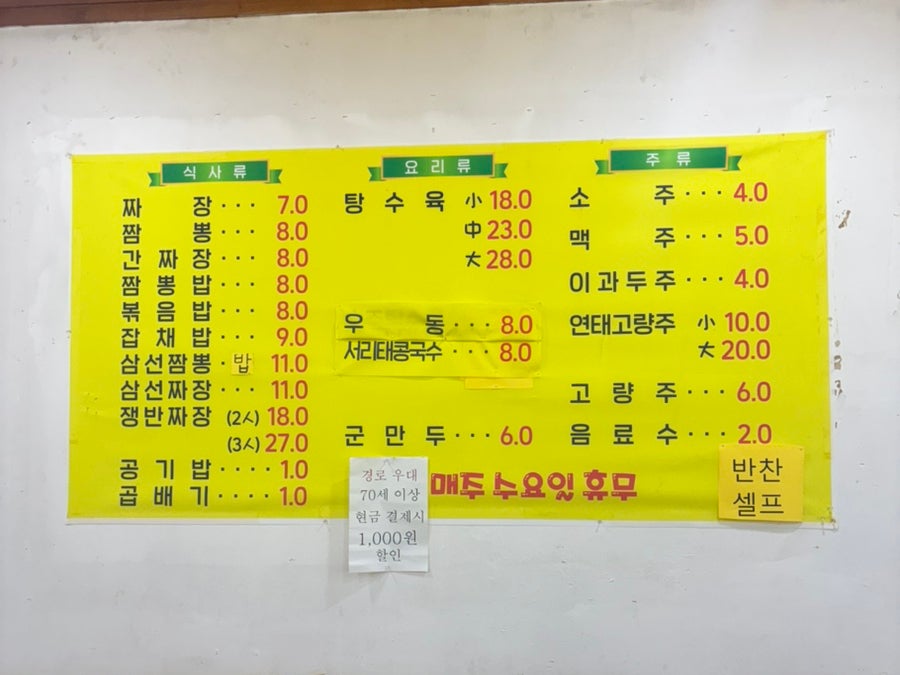 식사류
짜 장··· 7.0
짬 뽕··· 8.0
간 짜 장··· 8.0
짬 뽕 밥··· 8.0
볶 음 밥··· 8.0
잡 채 밥··· 9.0
삼선짬뽕·밥 11.0
삼선짜장··· 11.0
쟁반짜장 (2시) 18.0
(3시) 27.0
공 기 밥···· 1.0
곱 배 기···· 1.0
요리류
탕 수 육 小 18.0
中 23.0
大 28.0
우 동··· 8.0
서리태콩국수··· 8.0
군 만 두··· 6.0
매주 수요일 휴무
경로 우대
70세 이상
현금 결제시
1,000원
할인
주류
소 주··· 4.0
맥 주··· 5.0
이과두주··· 4.0
연태고량주 小 10.0
大 20.0
고 량 주··· 6.0
음 료 수··· 2.0
반찬
셀프